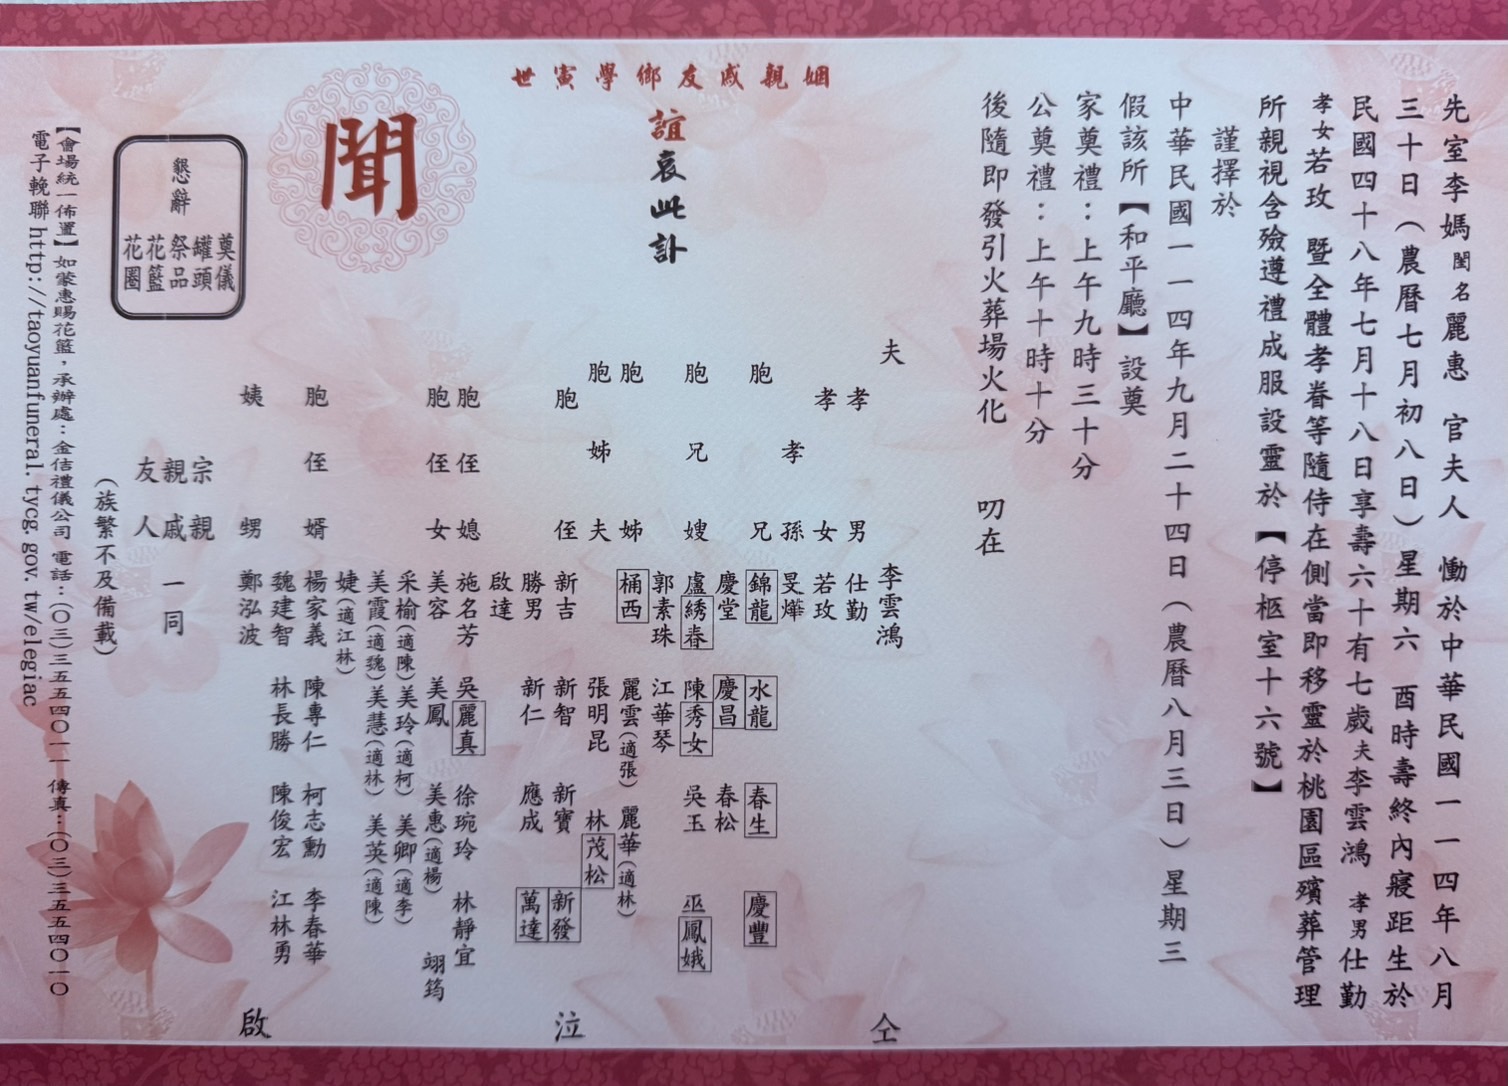 先室李媽閨名麗惠　官夫人　慟於中華民國一一四年八月
三十日（農曆七月初八日）星期六　酉時壽終內寢距生於
民國四十八年七月十八日享壽六十有七歲夫李雲鴻　孝男仕勤
孝女若玫　暨全體孝眷等隨侍在側當即移靈於桃園區殯葬管理
所親視含殮遵禮成服設靈於【停柩室十六號】
謹擇於
中華民國一一四年九月二十四日（農曆八月三日）星期三
假該所【和平廳】設奠
家奠禮：上午九時三十分
公奠禮：上午十時十分
後隨即發引火葬場火化　叨在
姻親戚友鄉學寅世
誼哀此訃
聞
夫　李雲鴻　仝
孝男　仕勤
孝女　若玫
孝孫　旻燁
胞兄　錦龍　水龍　春生　慶豐
慶堂　慶昌　春松
胞兄嫂　盧綉春　陳秀女　吳玉　巫鳳娥
郭素珠　江華琴
胞姊　桶西　麗雲(適張)　麗華(適林)
胞姊夫　張明昆　林茂松
胞侄　新吉　新智　新寶　新發　泣
勝男　新仁　應成　萬達
啟達
胞侄媳　施名芳　吳麗真　徐琬玲　林靜宜
胞侄女　美容　美鳳　美惠(適楊)　翊筠
采榆(適陳)　美玲(適柯)　美卿(適李)
美霞(適魏)　美慧(適林)　美英(適陳)
婕(適江林)
胞侄婿　楊家義　陳專仁　柯志勳　李春華
魏建智　林長勝　陳俊宏　江林勇
姨甥　鄭泓波　啟
宗親
親戚一同
友人
（族繁不及備載）
懇辭
奠儀
罐頭
祭品
花籃
花圈
【會場統一佈置】如蒙惠賜花籃，承辦處：金佶禮儀公司　電話：(〇三)三五五四〇一一　傳真：(〇三)三五五四〇一〇
電子輓聯http://taoyuanfuneral.tycg.gov.tw/elegiac